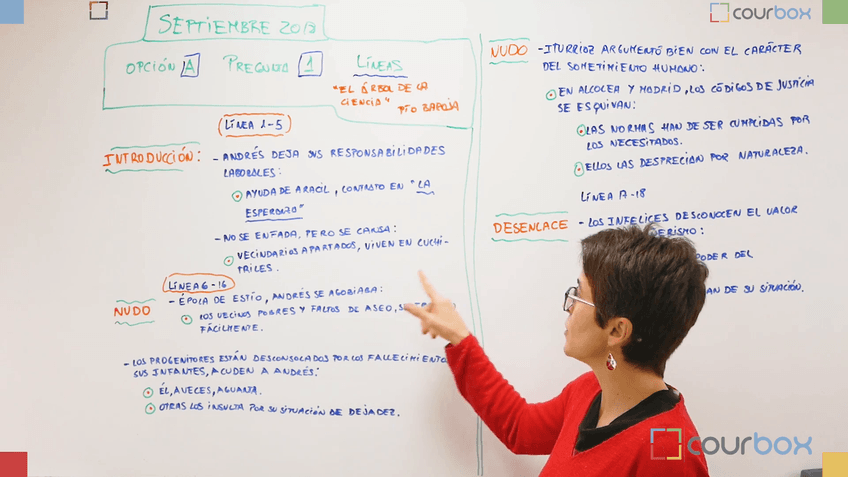 courbox
SEPTIEMBRE 2018
OPCIÓN A PREGUNTA 1 LÍNEAS
"EL ÁRBOL DE LA
CIENCIA" PÍO BAROJA
LÍNEA 1-5
INTRODUCCIÓN: - ANDRÉS DEJA SUS RESPONSABILIDADES
LABORALES:
AYUDA DE ARACIL, CONTRATO EN "LA
ESPERANZA"
- NO SE ENFADA, PERO SE CANSA:
VECINDARIOS APARTADOS, VIVEN EN CUCHI-
TRILES.
LÍNEA 6-16
NUDO - ÉPOCA DE ESTÍO, ANDRÉS SE AGOBIABA:
LOS VECINOS POBRES Y FALTOS DE ASEO,
FÁCILMENTE.
- LOS PROGENITORES ESTÁN DESCONSOLADOS POR LOS FALLECIMIENTO
SUS INFANTES, ACUDEN A ANDRÉS:
ÉL, A VECES, AGUANTA.
OTRAS LOS INSULTA POR SU SITUACIÓN DE DEJADEZ.
NUDO - ITURRIOZ ARGUMENTÓ BIEN CON EL CARÁCTER
DEL SOMETIMIENTO HUMANO:
EN ALCOLEA Y MADRID, LOS CÓDIGOS DE JUSTICIA
SE ESQUIVAN:
LAS NORMAS HAN DE SER CUMPLIDAS POR
LOS NECESITADOS.
ELLOS LAS DESPRECIAN POR NATURALEZA.
LÍNEA 17-18
DESENLACE - LOS INFELICES DESCONOCEN EL VALOR
ERISMO:
PODER DEL
AN DE SU SITUACIÓN.
courbox